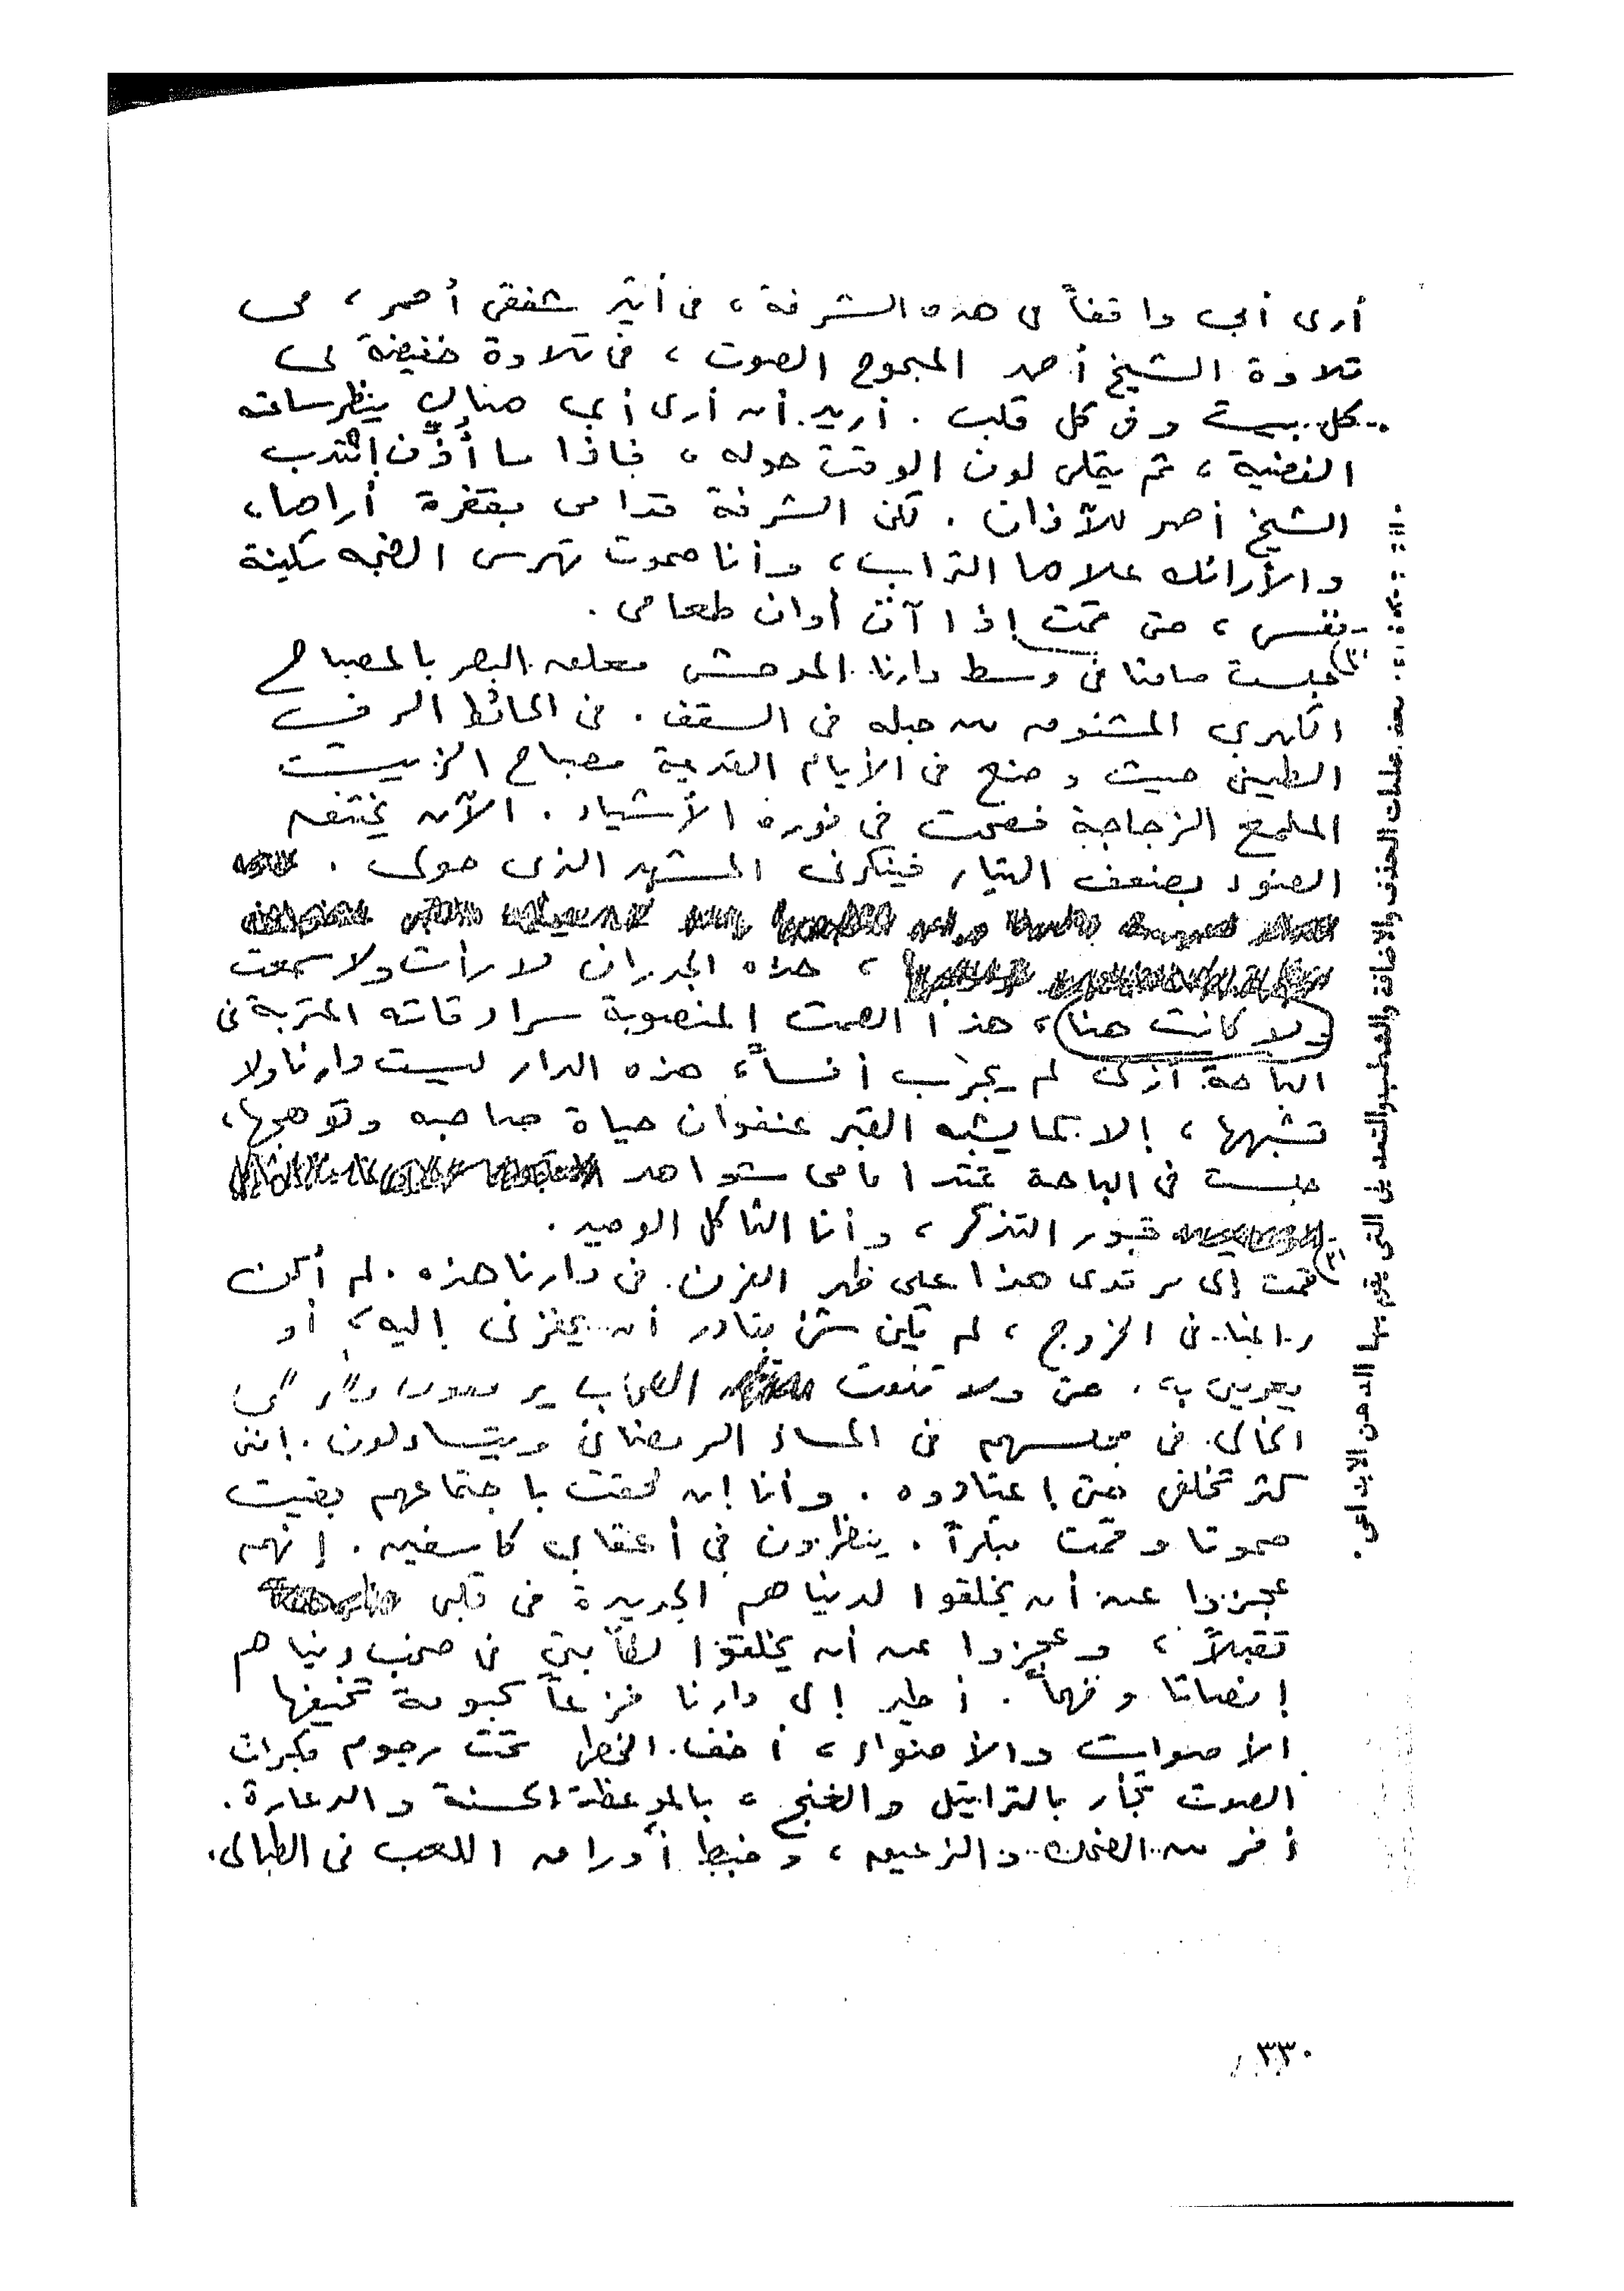 أرى أبي واقفاً فى هذه الشرفة، فى أثير شفقى أحمر، فى
تلاوة الشيخ أحمد المبحوح الصوت، فى تلاوة خفيضة فى
كل بيت وفى كل قلب. أريد أن أرى أبي هناك ينظر ساعته
الفضية، ثم يتملى لون الوقت حوله، فإذا ما أُذّن انتدب
الشيخ أحمد للآذان. لكن الشرفة قدامى مقفرة أراها،
والأرائك علاها التراب، وأنا صموت تهرس الضجه سكينة
نفسى، حتى قمت إذا آن أوان طعامى.
(٢) جلست صامتا فى وسط دارنا الموحش معلق البصر بالمصباح
الكهربى المشنوق من حبله فى السقف. فى الحائط الرف
الطينى حيث وضع فى الأيام القديمة مصباح الزيت
الملمع الزجاجة فصحت فى نوره الأشياء. الآن يختنق
الضوء بضعف التيار فينكرنى المشهد الذى حولى.
، هذه الجدران لا رأت ولا سمعت
ولا كانت هنا، هذا الصمت المنصوبة سرادقاته المتربة فى
الباحة أزلى لم يجرب أنساً، هذه الدار ليست دارنا ولا
تشبهها، إلا بما يشبه القبر عنفوان حياة صاحبه وتوهجها،
جلست فى الباحة تمتد أمامى شواهد
قبور التذكر، وأنا الثاكل الوحيد.
(٣) قمت إلى مرقدى هذا على ظهر الفرن. فى دارنا هذه. لم أكن
راغبا فى الخروج، لم يكن شئ بقادر أن يحفزنى إليه، أو
يغرينى به. حتى ولا تلفت الصحاب
الخالى فى مجلسهم فى المساء الرمضانى ويتساءلون. إننى
كثر تخلفى حتى اعتادوه. وأنا إن لحقت باجتماعهم بقيت
صموتا وقمت مبكراً. ينظرون فى أعقابى كاسفين. إنهم
عجزوا عن أن يخلقوا لدنياهم الجديدة فى قلبى
تقبلاً، وعجزوا عن أن يخلقوا لكآبتى فى صخب دنياهم
إنصاتا وفهماً. أطير إلى دارنا فزعاً كبومة تخيفها
الأصوات والأضواء، أخف الخطا تحت رجوم مكبرات
الصوت تجأر بالتراتيل والغنج، بالموعظة الحسنة والدعارة.
أفر من الضحك والزعيق، وخبط أوراق اللعب فى الطبالى.
بعض عمليات الحذف والاضافة والشطب والتعديل التى يقوم بها الذهن الابداعى.
٣٣٠